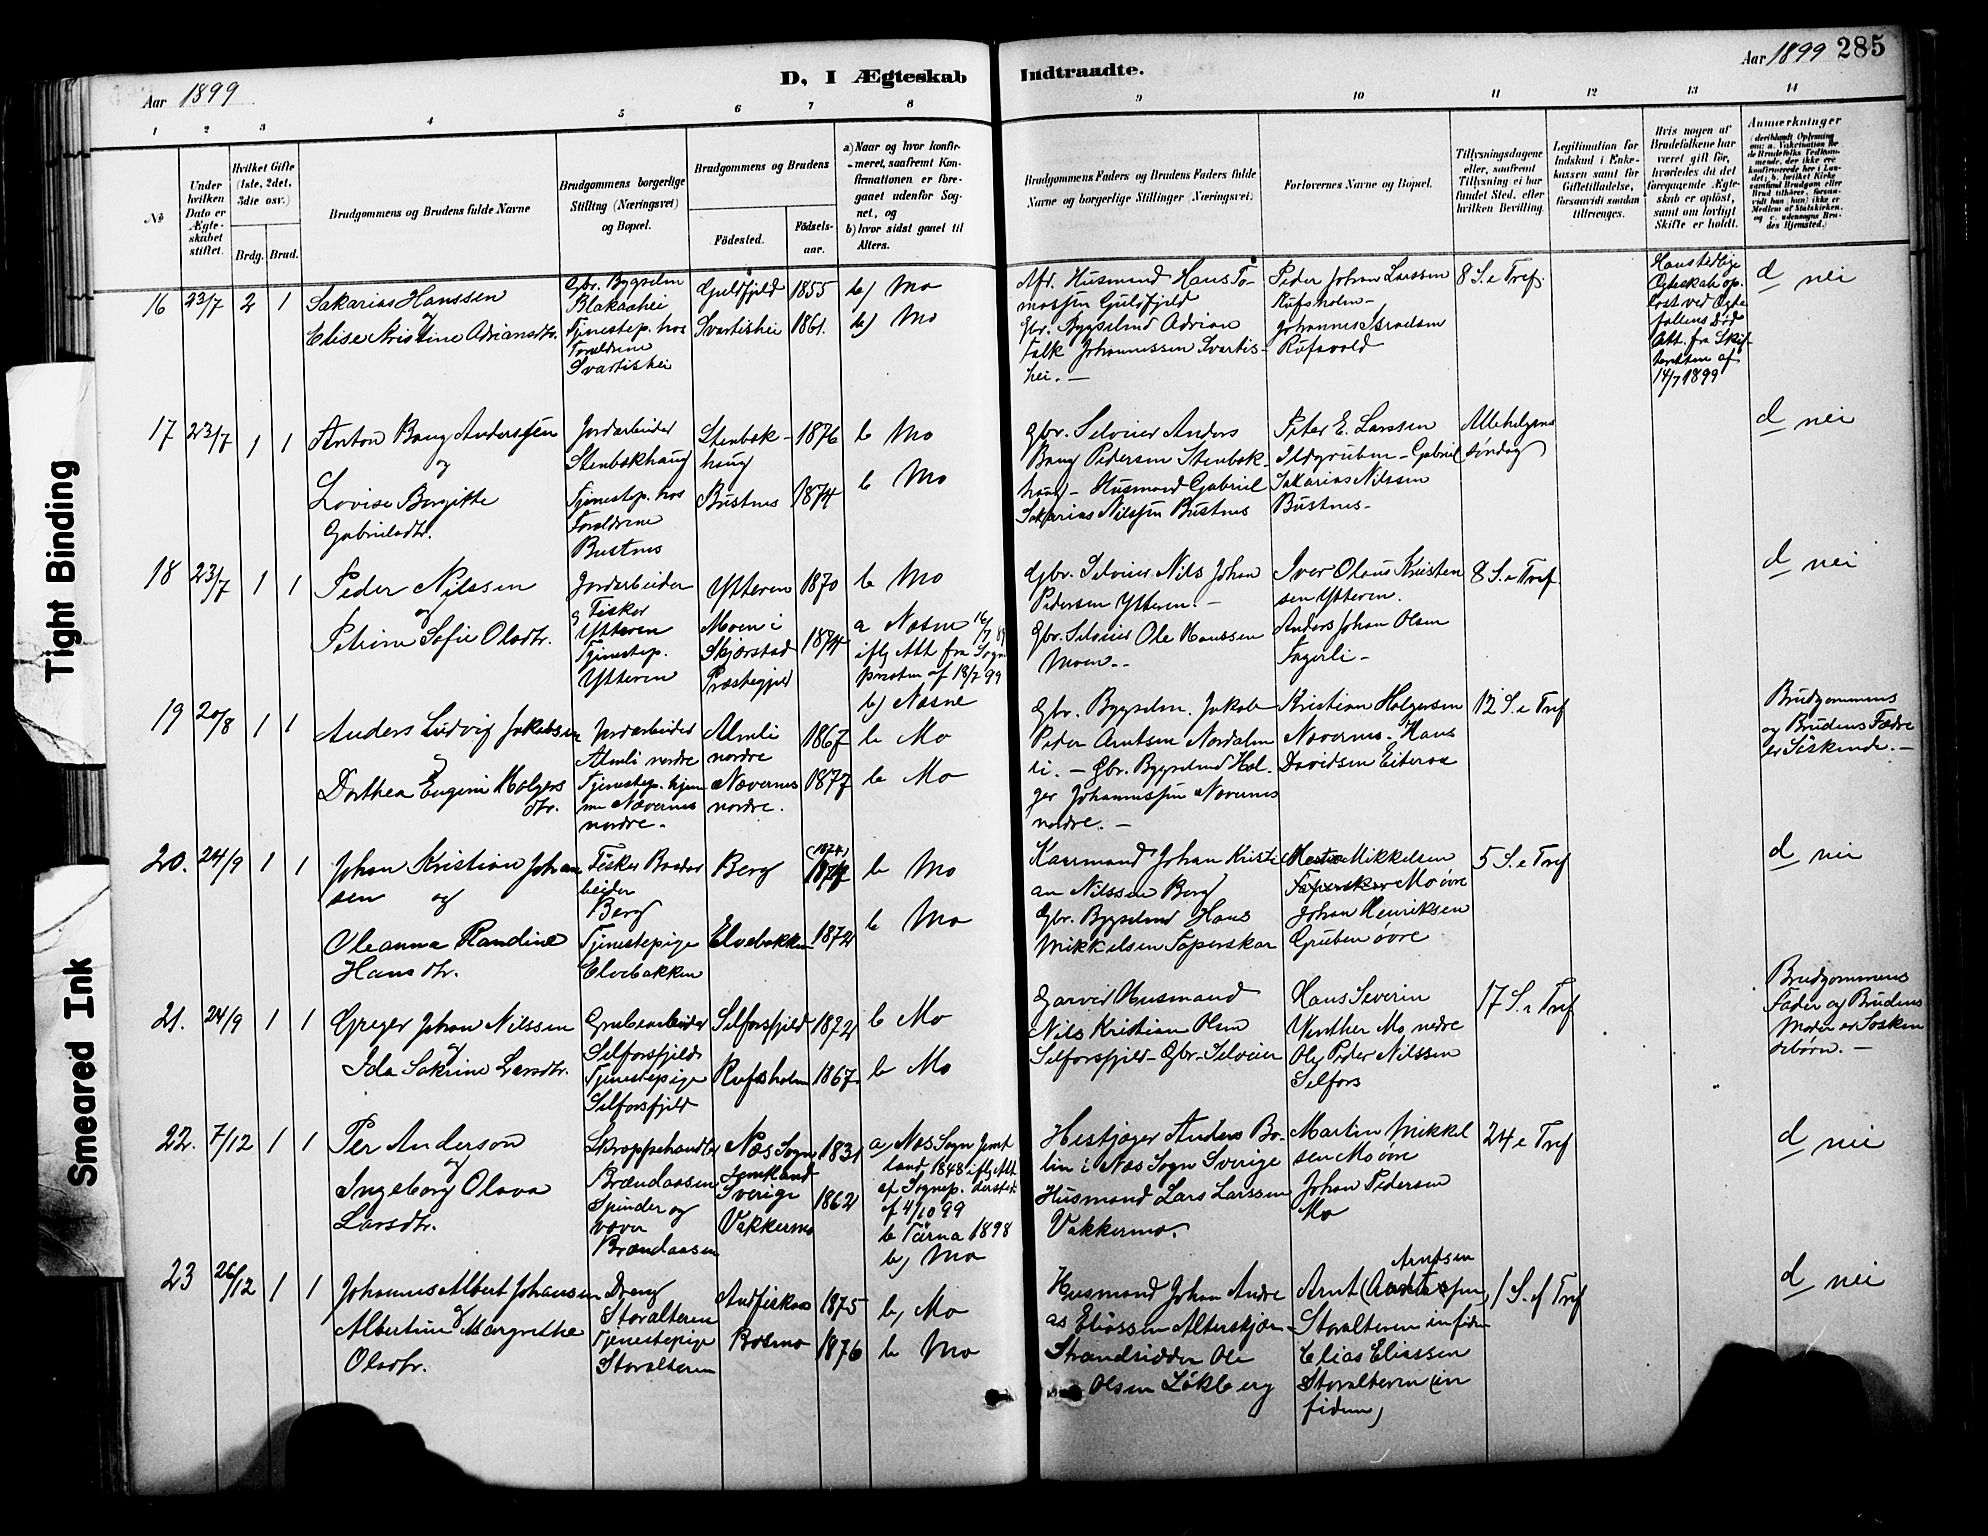 Aar 1899
D, I Ægteskab Indtraadte.
Aar 1899 285
1 2 3 4 5 6 7 8 9 10 11 12 13 14
No
Under hvilken Dato er Ægte-skabet stiftet.
Hvilket Gifte (1ste, 2det, 3die osv.)
Brdg. Brud.
Brudgommens og Brudens fulde Navne
Brudgommens borgerlige Stilling (Næringsvei) og Bopæl.
Brudgommens og Brudens
Fødested.
Fødsels-aar.
a) Naar og hvor konfir-meret, saafremt Kon-firmationen er fore-gaaet udenfor Sog-net, og
b) hvor sidst gaaet til Alters.
Brudgommens Faders og Brudens Faders fulde Navne og borgerlige Stillinger (Næringsvei.)
Forlovernes Navne og Bopæl.
Tillysningsdagene eller, saafremt Tillysning ei har fundet Sted, efter hvilken Bevilling.
Legitimation for Indskud i Enke-kassen samt for Giftetilladelse, forsaavidt saadan tiltrænges.
Hvis nogen af Brudefolkene har været gift før, hvorledes da det foregaaende Ægte-skab er opløst, samt om lovligt Skifte er holdt.
Anmærkninger
16 23/7 2 1
Sakarias Hanssen
og
Elise Kristine Adriansdtr.
Gbr. Bygselm
Blakåshei
Tjenestep. hos
Foraldrene
Svartishei
Guldfjeld 1855 b) Mo
Svartishei 1861. b) Mo
Afd. Husmand Hans To-
massen Guldfjeld
Gbr. Bygselmd Adrian
Falk Johannessen Svartis-
hei. -
Peder Johan Larssen
Rufsholm -
Johannes Israelsen
Rufsvold
8 S. e Tref.
Hans tidlige
Ægteskab op-
løst ved Ægte
fællens Død
Att. fra Skif-
teretten af
14/7 1899
d nei
17 23/7 1 1
Anton Bang Anderssen
og
Lovise Bergitte
Gabrielsdtr.
Jordarbeider
Stenbækhaug
Tjenestep. hos
Foraldrene
Bustnes
Stenbæk-
haug 1876 b Mo
Bustnes 1874 b Mo
Gbr. Selveier Anders
Bang Pedersen Stenbæk-
haug - Husmand Gabriel
Sakarias Nilssen Bustnes
Peter E. Larssen
Ildgruben - Gabriel
Sakarias Nilssen
Bustnes -
Allehelgens
søndag
d nei
18 23/7 1 1
Peder Nilssen
og
Petrine Sofie Olsdtr.
Jordarbeider
& Fisker
Ytteren
Tjenestep.
Ytteren
Ytteren 1870 b Mo
Moen i
Skjerstad
Præstegjeld 1874
a Næsne 16/7 89
iflg Att fra Sogne
præsten af 18/7 99
b) Næsne
Gbr. Selveier Nils Johan
Pedersen Ytteren. -
Gbr. Selveier Ole Hanssen
Moen. -
Iver Olaus Kristen
sen Ytteren.
Anders Johan Olsen
Fagerli -
8 S. e Tref
d nei
19 20/8 1 1
Anders Ludvig Jakobsen
og
Dorthea Eugenie Holgers
dtr.
Jordarbeider
Almli nordre
Tjenestep. hjem
me Nævernes
nordre.
Almli
nordre 1867 b Mo
Nævernes
nordre. 1877 b Mo
Gbr. Bygselm. Jakob
Peder Arntsen Nordalm
li. - Gbr. Bygselmd Hol-
ger Johannessen Nævernes
nordre. -
Kristian Holgersen
Nævernes. Hans
Davidsen Eiteraa
12 S. e Tref
Brudgommens
og Brudens Fædre
er Søskende. -
20. 24/9 1 1
Johan Kristian Johan
sen og
Oleanna Randine
Hansdtr.
Fisker Bordar
beider
Berg
Tjenestepige
Elvebakken
Berg (1874) b Mo
Elvebakken 1872 b Mo
Kaarmand Johan Kristi
an Nilssen Berg
Gbr. Bygselmd Hans
Mikkelsen Faperskar
Mikkelsen
Mo øvre
Johan Henriksen
Gruben øvre
5 S. e Tref
d nei
21. 24/9 1 1
Greger Johan Nilssen
og
Ida Sakrine Larsdtr.
Grubearbeider
Selforsfjeld
Tjenestepige
Selforsfjeld
Selforsfjeld 1872 b Mo
Rufsholm 1867. b Mo
Garver Husmand
Nils Kristian Olsen
Selforsfjeld - Gbr. Selveier
Hans Severin
Winther Mo nedre
Ole Peder Nilssen
Selfors
17 S. e Tref
Brudgommens
Fader og Brudens
Moder er Søsken
debørn. -
22. 7/12 1 1
Per Anderson
og
Ingeborg Olava
Larsdtr.
Skræppehandler
Brændaasen
Spinder og
væver
Brændaasen
Næs Sogn
Jemtland
Sverige 1831
Vakkermo 1862
a) Næs Sogn Jemt
land 1848 iflg Att
af Sognep. dersteds
af 4/10 99
b Tärna 1898
b) Mo
Hestjæger Anders Bo-
lin i Næs Sogn Sverige
Husmand Lars Larssen
Vakkermo.
Martin Mikkel
sen Mo øvre
Johan Pedersen
Mo
24 e Tref
d nei
23 26/12 1 1
Johannes Albert Johansen
og
Albertine Margrethe
Olsdtr.
Dreng
Storalteren
Tjenestepige
Storalteren
Andfiskaa 1875 b) Mo
Bosmo 1876 b Mo
Husmand Johan Andre
as Eliassen Alterskjær
Strandsidder Ole
Olsen Løkberg
Arntsen
Arnt
Storalteren infidm
Elias Eliassen
Storalteren (in
fidem)
1 S. ef Tref
d nei
Tight Binding
Smeared Ink